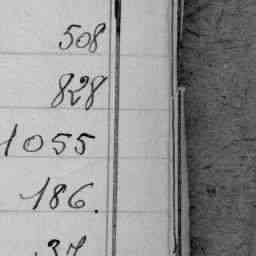 508
828
1055
186.
37